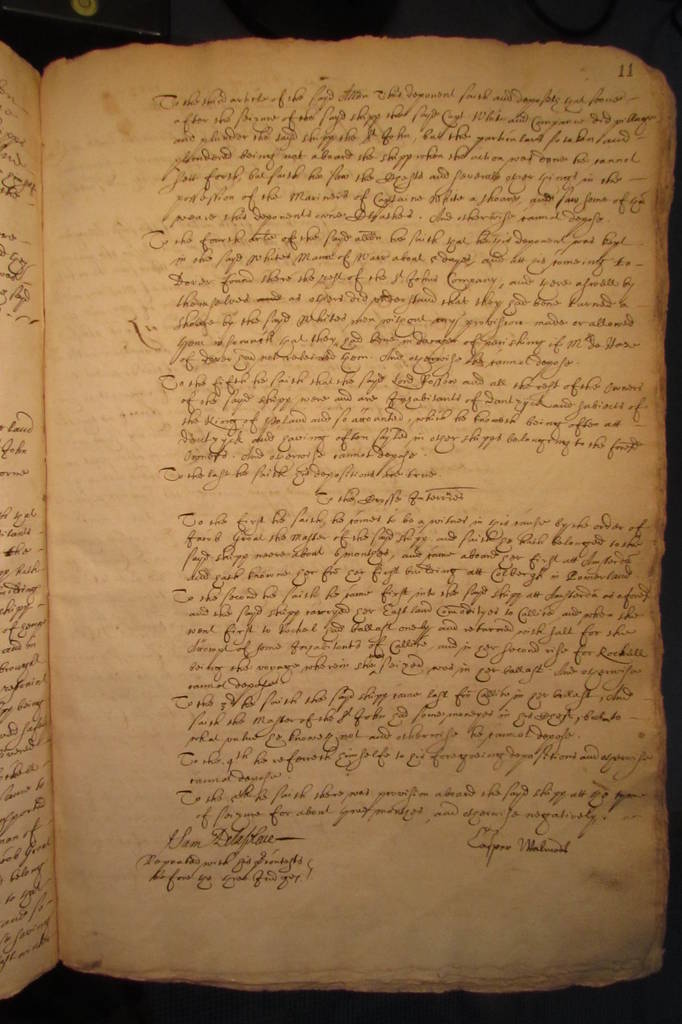 11
To the third article of the sayd Allon this deponent saith and deposeth that soone
after the seizure of the sayd shipp the sayd Capt White and Companie did pillage
and plunder the sayd shipp the St John, but the particulars so taken and
plundered being not aboard the shipp when the action was done he cannot
sett forth, but saith he saw the Chests and severall other things in the
possession of the Mariners of Captaine White a shoare, and saw some of them
weare this deponents owne Cloathes. And otherwise cannot depose.
To the fourth arle of the sayd allon he saith that he this deponent was kept
in the sayd Whites Mann of Warr about 5 dayes, and att his comeing to
Dover found there the rest of the St Johns Company, and were aswell by
themselves as others did understand that they had bene turned a
shoare by the sayd Whites men without any provision made or allowed
them insomuch that they had bene in danger of perishing if Mr de
of Dover had not releived them. And otherwise he cannot depose.
To the fifth he saith that the sayd and all the rest of the Owners
of the sayd shipp were and are Inhabitants of Dantzijck and subiects of
the King of Poland and so accounted, which he knoweth being often att
Dantzijck and having often sayled in other shipps belonging to the
Owners. And otherwise cannot depose.
To the last he saith his depositions are true.
To the Crosse Interries
To the first he saith, he comes to be a witnes in this cause by the order of
Jacob Groal the Master of the sayd shipp and saith he hath belonged to the
sayd shipp neere about 6 monthes, and came aboard her first att Amsterdam
And hath knowne her from her first building att Colbergh in Pomerland
To the second he saith he came first into the sayd shipp att Amsterdam as aforesd
and the sayd shipp carryed her Eastland Comodityes to Callice and when she
went first to Rochel had ballast onely and returned with salt for the
Accompt of some Inhabitants of Callice, and in her second rise for Rochell
being the voyage wherein she seized, was in her ballast. And otherwise
cannot depose
To the 3d he saith the sayd shipp came last from Callice in her ballast, And
saith the Master of the St John had some moneyes in his chest, but to
what value he knoweth not and otherwise he cannot depose.
To the 4th he referreth himselfe to his foregoeing depositions and otherwise
cannot depose
To the he saith there was provision aboard the sayd shipp att the tyme
of seizure for about three monthes, and otherwise negatively.
Casper
Repeated with his
before the two Judges.